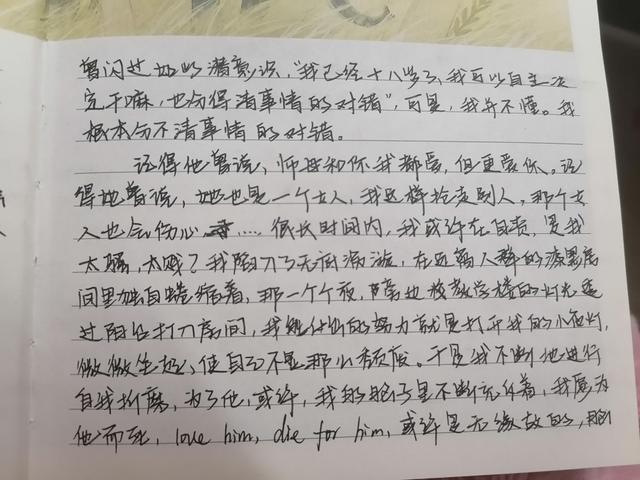 曾闪过她的潜意识，“我已经十八岁了，我可以自主决
定干嘛，也分得清事情的对错”，可是，我并不懂。我
根本分不清事情的对错。
记得他曾说，师母和你我都爱，但更爱你。记
得她曾说，她也是一个女人，我这样抢走别人，那个女
人也会伤心……很长时间内，我或许在自责，是我
太骚，太贱？我陷入了无底漩涡，在远离人群的漆黑房
间里独自蜷缩着，那一个个夜，旁边教学楼的灯光透
过阳台打入房间，我能付出的努力就是打开我的小夜灯，
微微坐起，使自己不显那么颓废。于是我不断地进行
自我折磨，为了他，或许，我的脑子里不断充斥着，我愿为
他而死，love him, die for him, 或许是无缘故的，脑